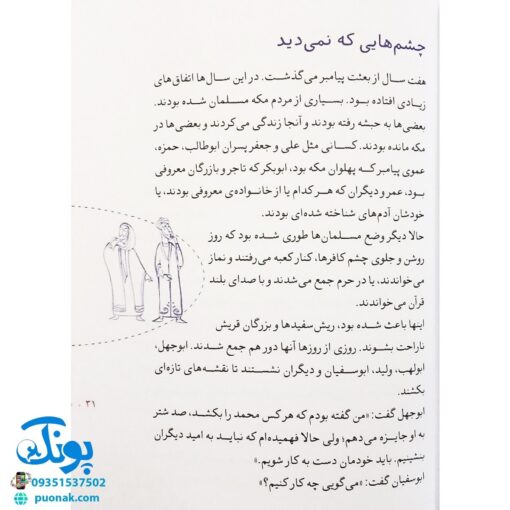 چشم‌هایی که نمی‌دید
هفت سال از بعثت پیامبر می‌گذشت. در این سال‌ها اتفاق‌های
زیادی افتاده بود. بسیاری از مردم مکه مسلمان شده بودند.
بعضی‌ها به حبشه رفته بودند و آنجا زندگی می‌کردند و بعضی‌ها در
مکه مانده بودند. کسانی مثل علی و جعفر پسران ابوطالب، حمزه،
عموی پیامبر که پهلوان مکه بود، ابوبکر که تاجر و بازرگان معروفی
بود، عمر و دیگران که هر کدام یا از خانواده‌ی معروفی بودند، یا
خودشان آدم‌های شناخته شده‌ای بودند.
حالا دیگر وضع مسلمان‌ها طوری شده بود که روز
روشن و جلوی چشم کافرها، کنار کعبه می‌رفتند و نماز
می‌خواندند، یا در حرم جمع می‌شدند و با صدای بلند
قرآن می‌خواندند.
اینها باعث شده بود، ریش‌سفیدها و بزرگان قریش
ناراحت بشوند. روزی از روزها آنها دور هم جمع شدند. ابوجهل،
ابولهب، ولید، ابوسفیان و دیگران نشستند تا نقشه‌های تازه‌ای
بکشند.
ابوجهل گفت: «من گفته بودم که هر کس محمد را بکشد، صد شتر
به او جایزه می‌دهم؛ ولی حالا فهمیده‌ام که نباید به امید دیگران
بنشینیم. باید خودمان دست به کار شویم.»
ابوسفیان گفت: «می‌گویی چه کار کنیم؟»
۳۱
پونک
09351537502
puonak.com